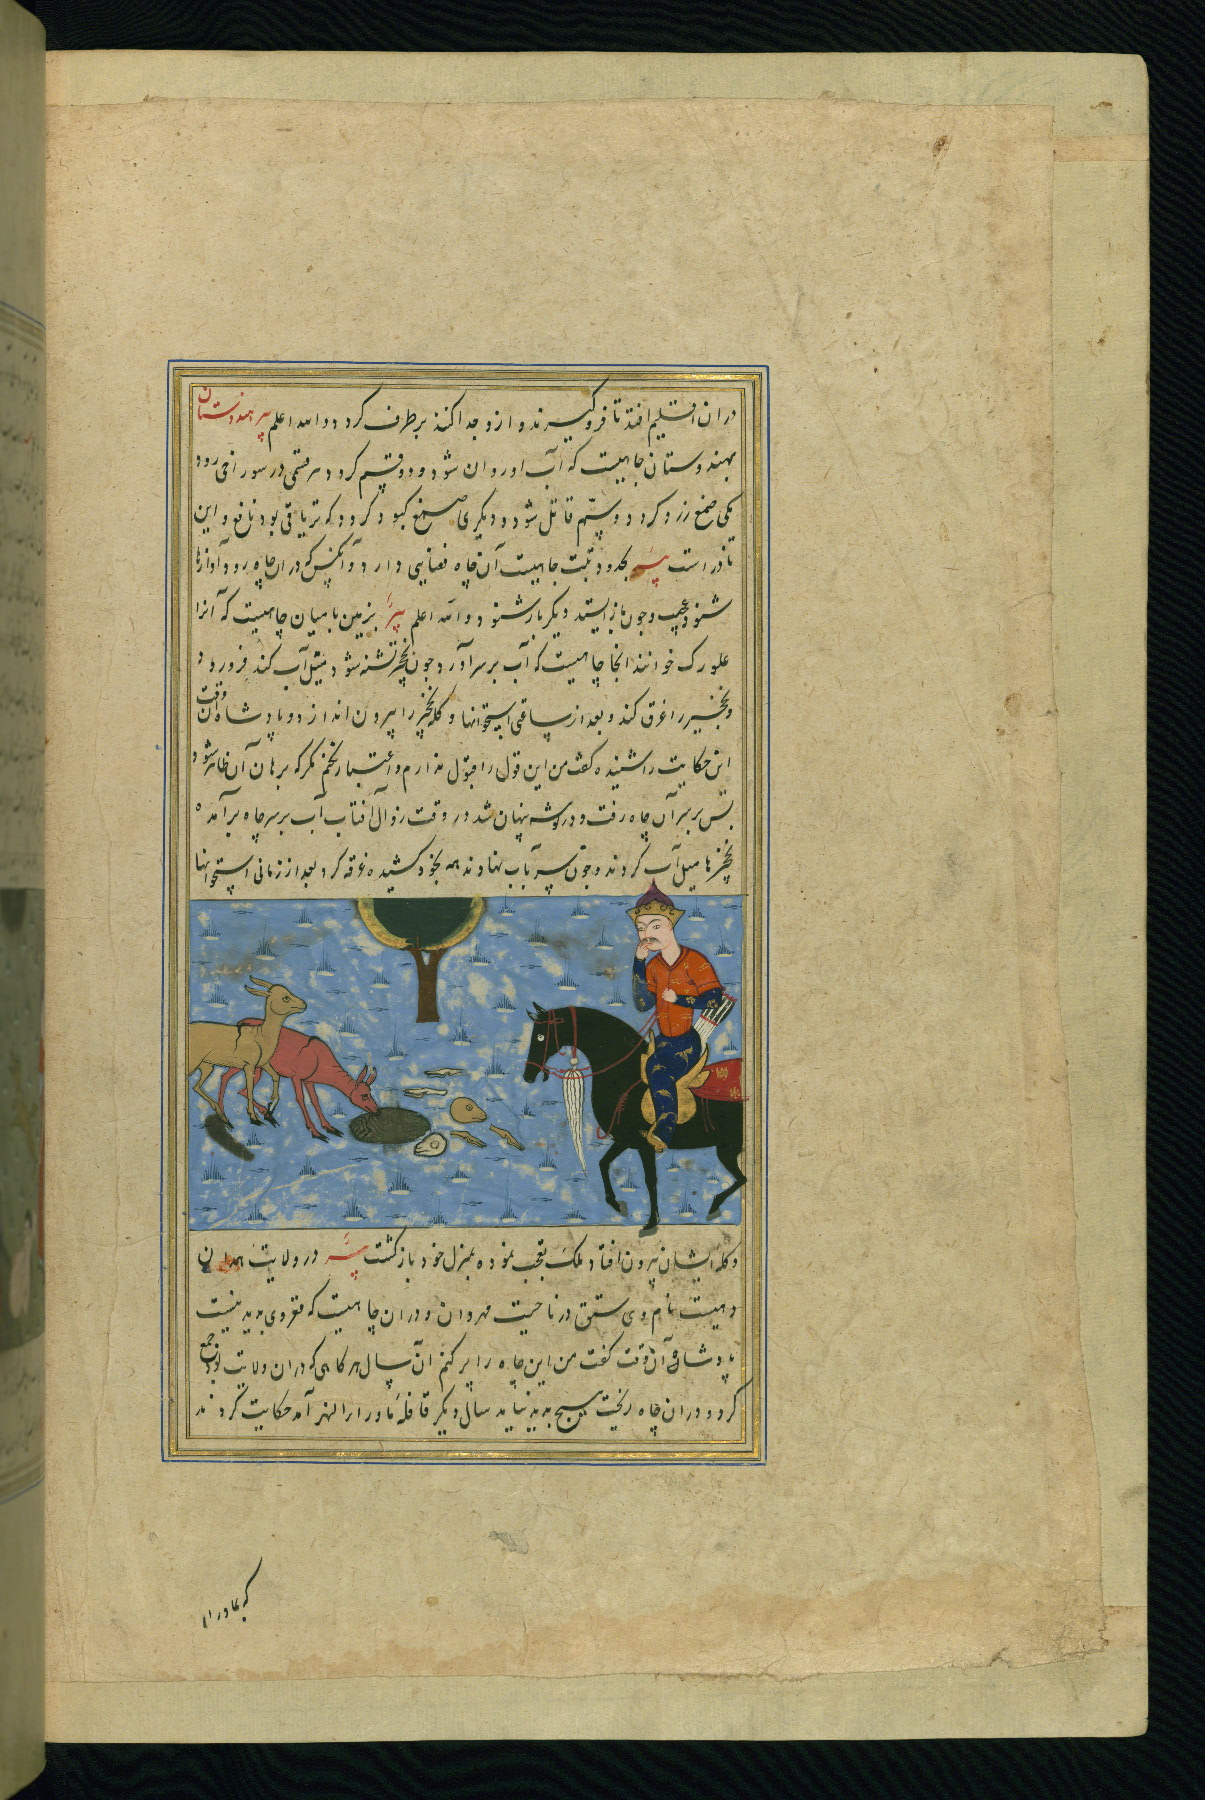 دران اقلیم افتد تا فرو گیرند و ازو جدا کنند برطرف کردد والله اعلم بیر هندوستان
بهندوستان چاهیست که آب او روان شود و دو قسم کردد هر قسمی در سوراخی رود
یکی صمغ زرد کردد و سم قاتل شود و دیگری صمغ کبود کردد که تریاقی بود نافع و این
نادر است بیر بحدود تبت چاهیست آن چاه فضایی دارد و آنکس که دران چاه رود آوازها
شنود عجب و چون باز ایستد دیگر باز شنود والله اعلم بیر بزمین بامیان چاهیست که آنرا
علورک خوانند انجا چاهیست که آب برسر آورد چون نخچیر تشنه شود میل آب کند فرو رود
و نخچیر را غرق کند و بعد از ساعتی استخوانها و کله نخچیر را بیرون اندازد و پادشاه آن وقت
این حکایت را شنیده گفت من این قول را قبول ندارم و اعتبار نکنم مگر که برهان آن ظاهر شود
پس برسر آن چاه رفت و در گوشه پنهان شد در وقت زوال آفتاب آب برسر چاه برآمد
نخچیرها میل آب کردند و چون سر بآب نهادند همه بخود کشیده غرقه کرد بعد از زمانی استخوانها
و کله ایشان بیرون افتاد ملک تعجب نموده بمنزل خود باز گشت بیر در ولایت همدان
دهیست نام وی ستق در ناحیت مهروان و دران چاهیست که قعر وی پدید نیست
پادشاه آن وقت گفت من این چاه را پر کنم آن سال هر کاهی که دران ولایت بود جمع
کرد و دران چاه ریخت هیچ پدید نیاید سال دیگر قافله ماورا النهر آمد حکایت کردند
که بما دران